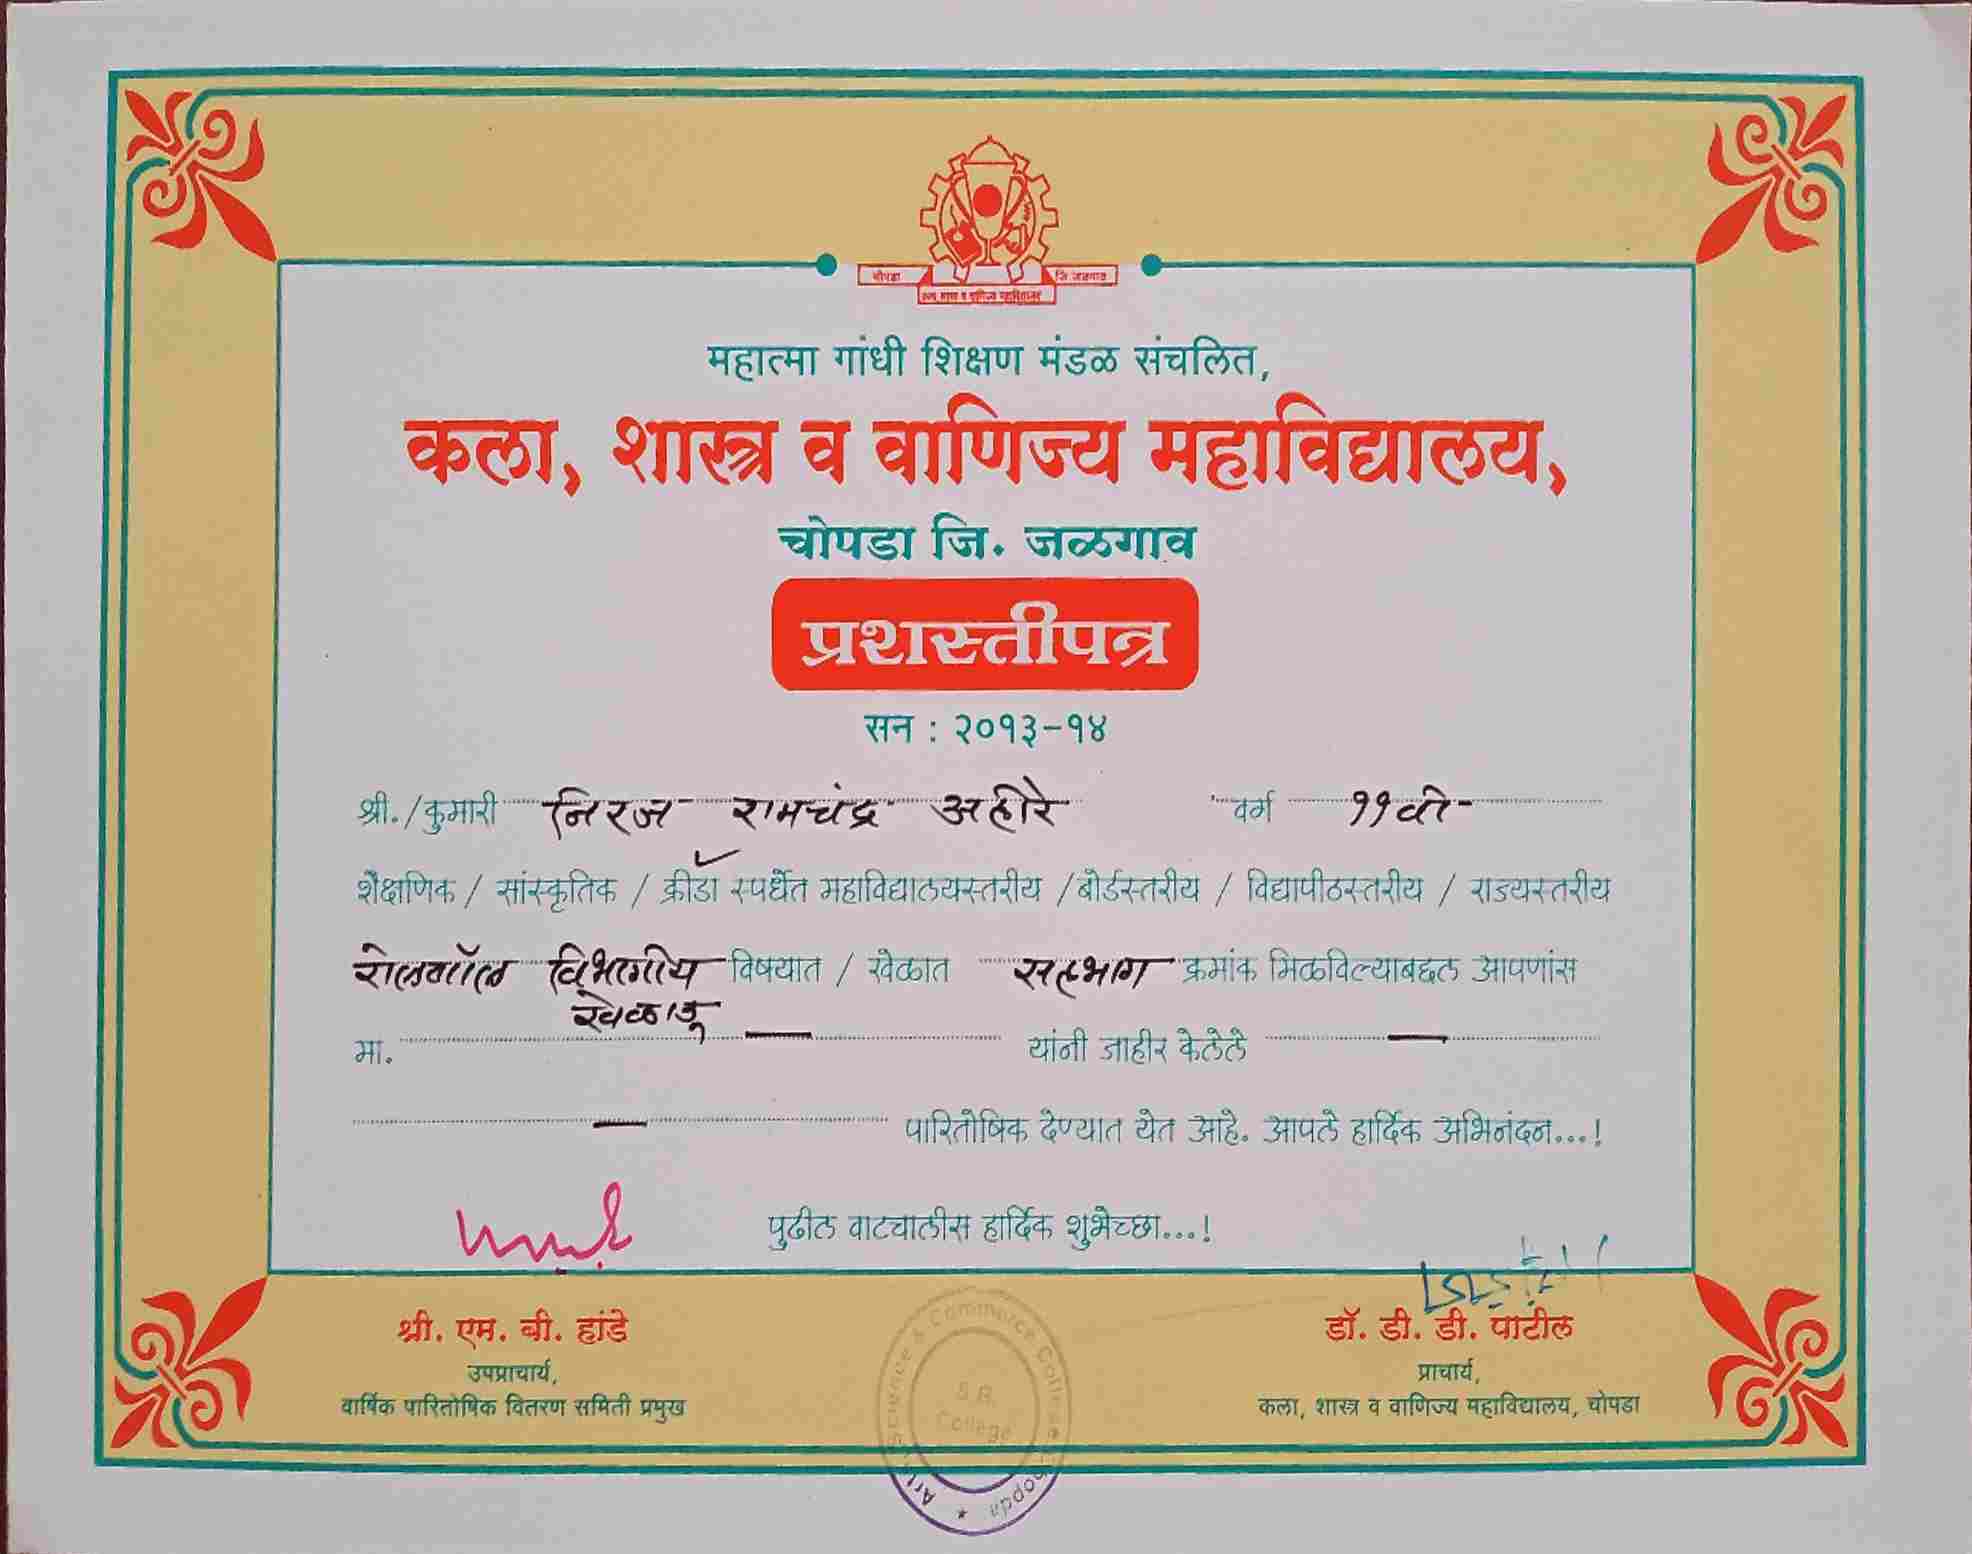 चोपडा जि. जळगाव
महात्मा गांधी शिक्षण मंडळ संचलित,
कला, शास्त्र व वाणिज्य महाविद्यालय,
चोपडा जि. जळगाव
प्रशस्तीपत्र
सन : २०१३-१४
श्री./कुमारी निरज रामचंद्र अहीरे वर्ग ११वी
शैक्षणिक / सांस्कृतिक / क्रीडा स्पर्धेत महाविद्यालयस्तरीय /बोर्डस्तरीय / विद्यापीठस्तरीय / राज्यस्तरीय
रोलबॉल विभागीय विषयात / खेळात सहभाग क्रमांक मिळविल्याबद्दल आपणांस
खेळाडू
मा. — यांनी जाहीर केलेले —
— पारितोषिक देण्यात येत आहे. आपले हार्दिक अभिनंदन...!
पुढील वाटचालीस हार्दिक शुभेच्छा...!
श्री. एम. बी. हांडे
उपप्राचार्य,
वार्षिक पारितोषिक वितरण समिती प्रमुख
डॉ. डी. डी. पाटील
प्राचार्य,
कला, शास्त्र व वाणिज्य महाविद्यालय, चोपडा
Science & Commerce College Chopda
College